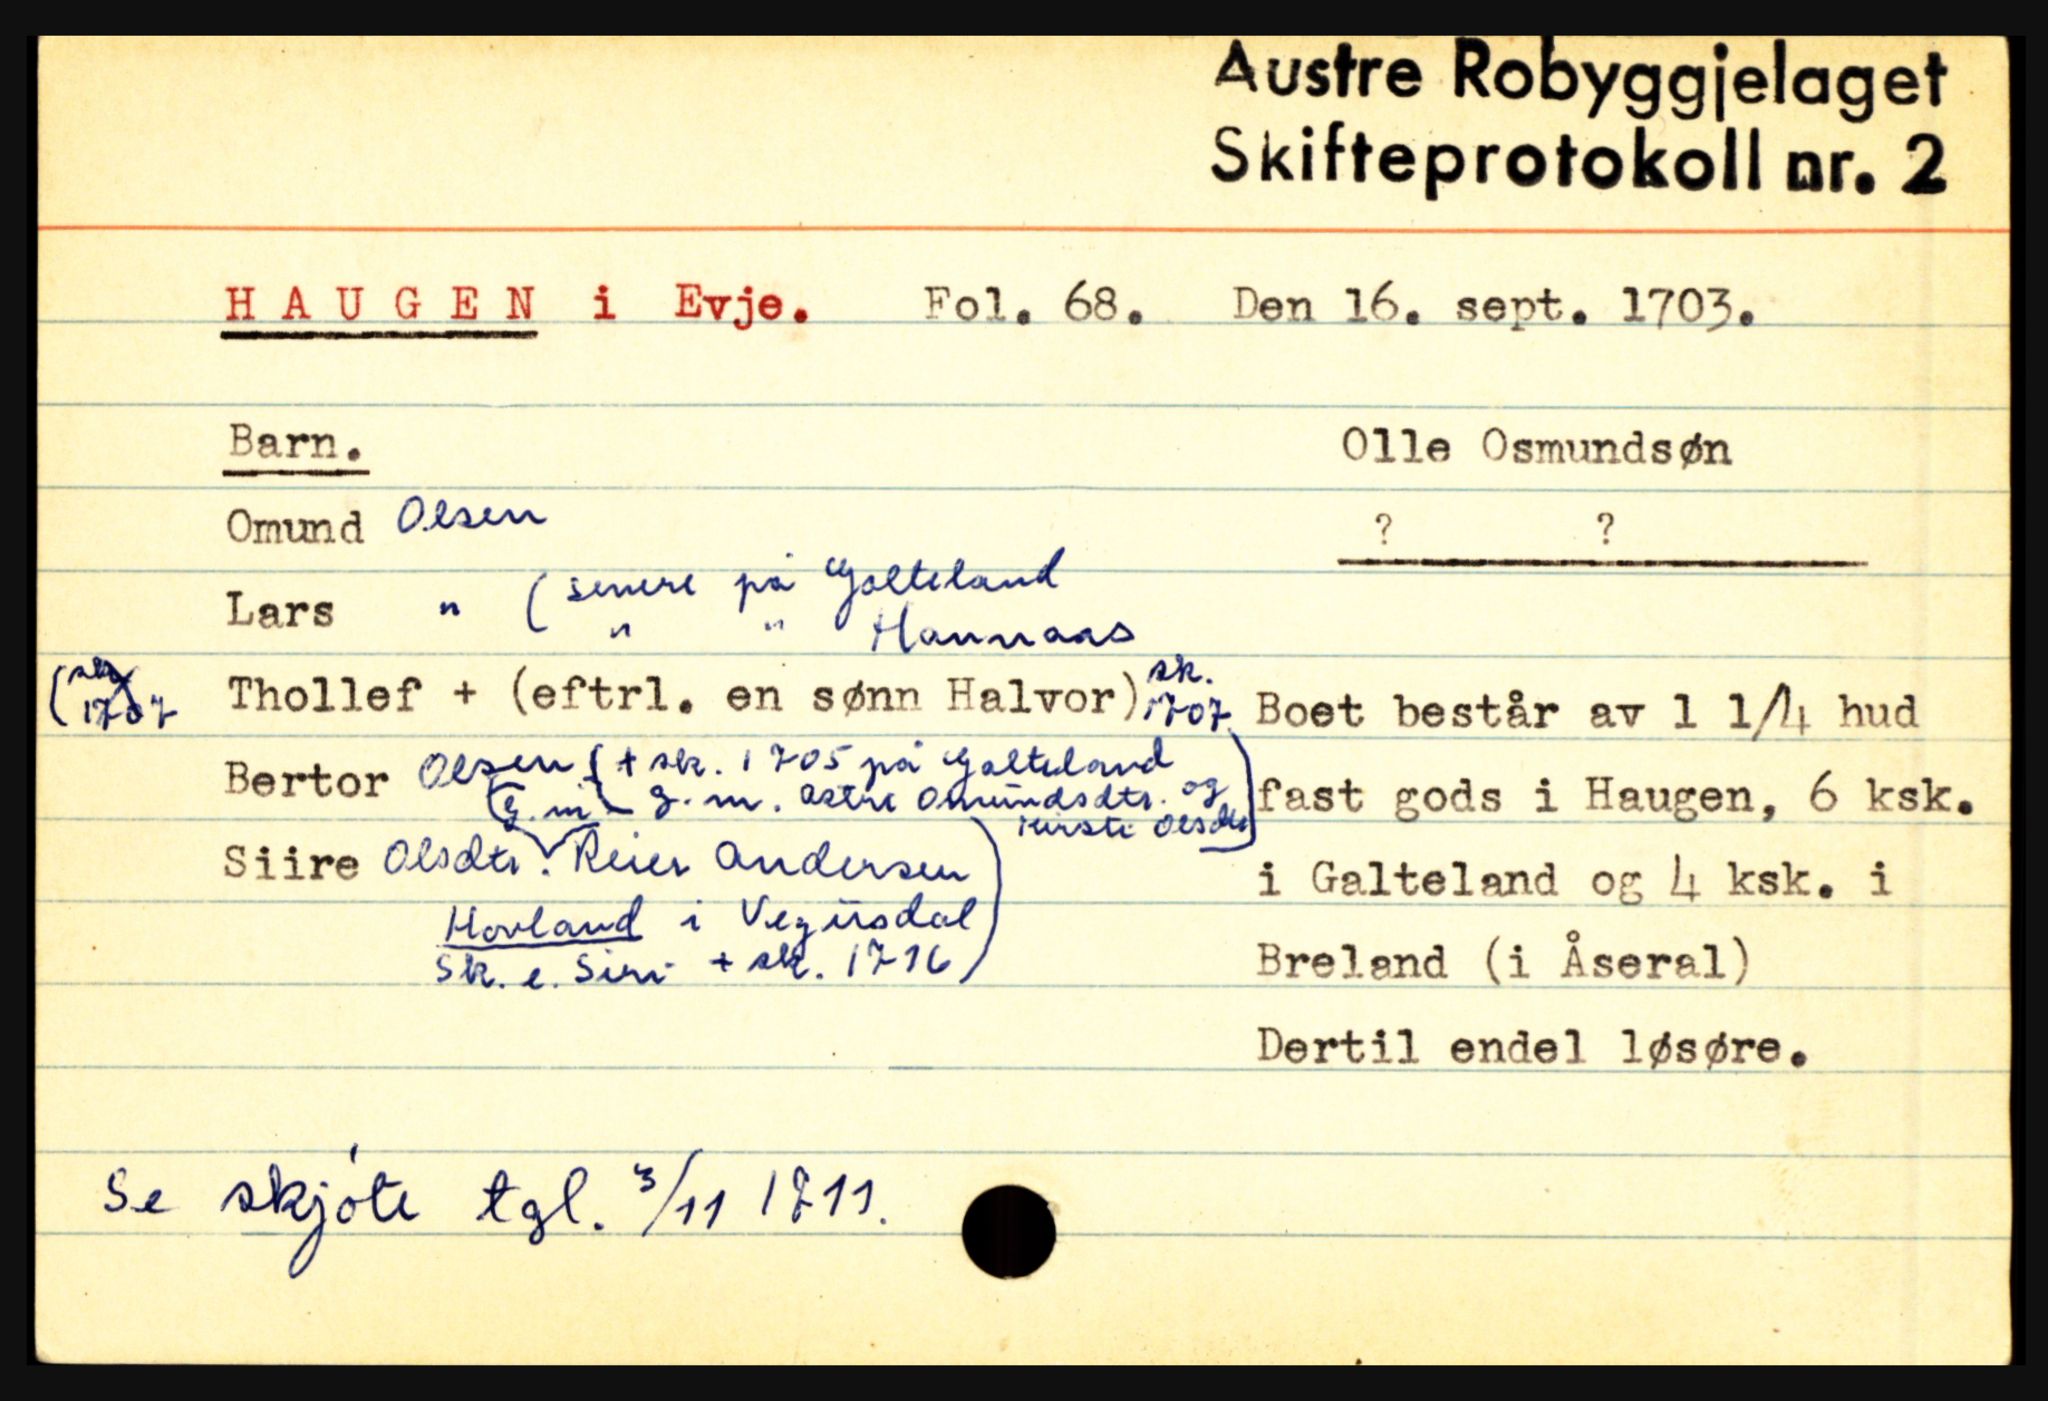 Austre Robyggjelaget
Skifteprotokoll nr. 2
HAUGEN i Evje. Fol. 68. Den 16. sept. 1703.
Barn.
Omund Olsen
Lars " (senere på Galteland
" " Hannaas
(sk. 1707
Thollef + (eftrl. en sønn Halvor) sk. 1707
Bertor Olsen (+ sk. 1705 på Galteland
g. m. Astri Omundsdtr. og
Kirsti Olsdtr)
(g. m.
Siire Olsdtr. Reier Andersen
Hovland i Vegusdal
Sk. e. Siri + sk. 1716)
Olle Osmundsøn
? ?
Boet består av 1 1/4 hud
fast gods i Haugen, 6 ksk.
i Galteland og 4 ksk. i
Breland (i Åseral)
Dertil endel løsøre.
Se skjóte tgl. 3/11 1711.